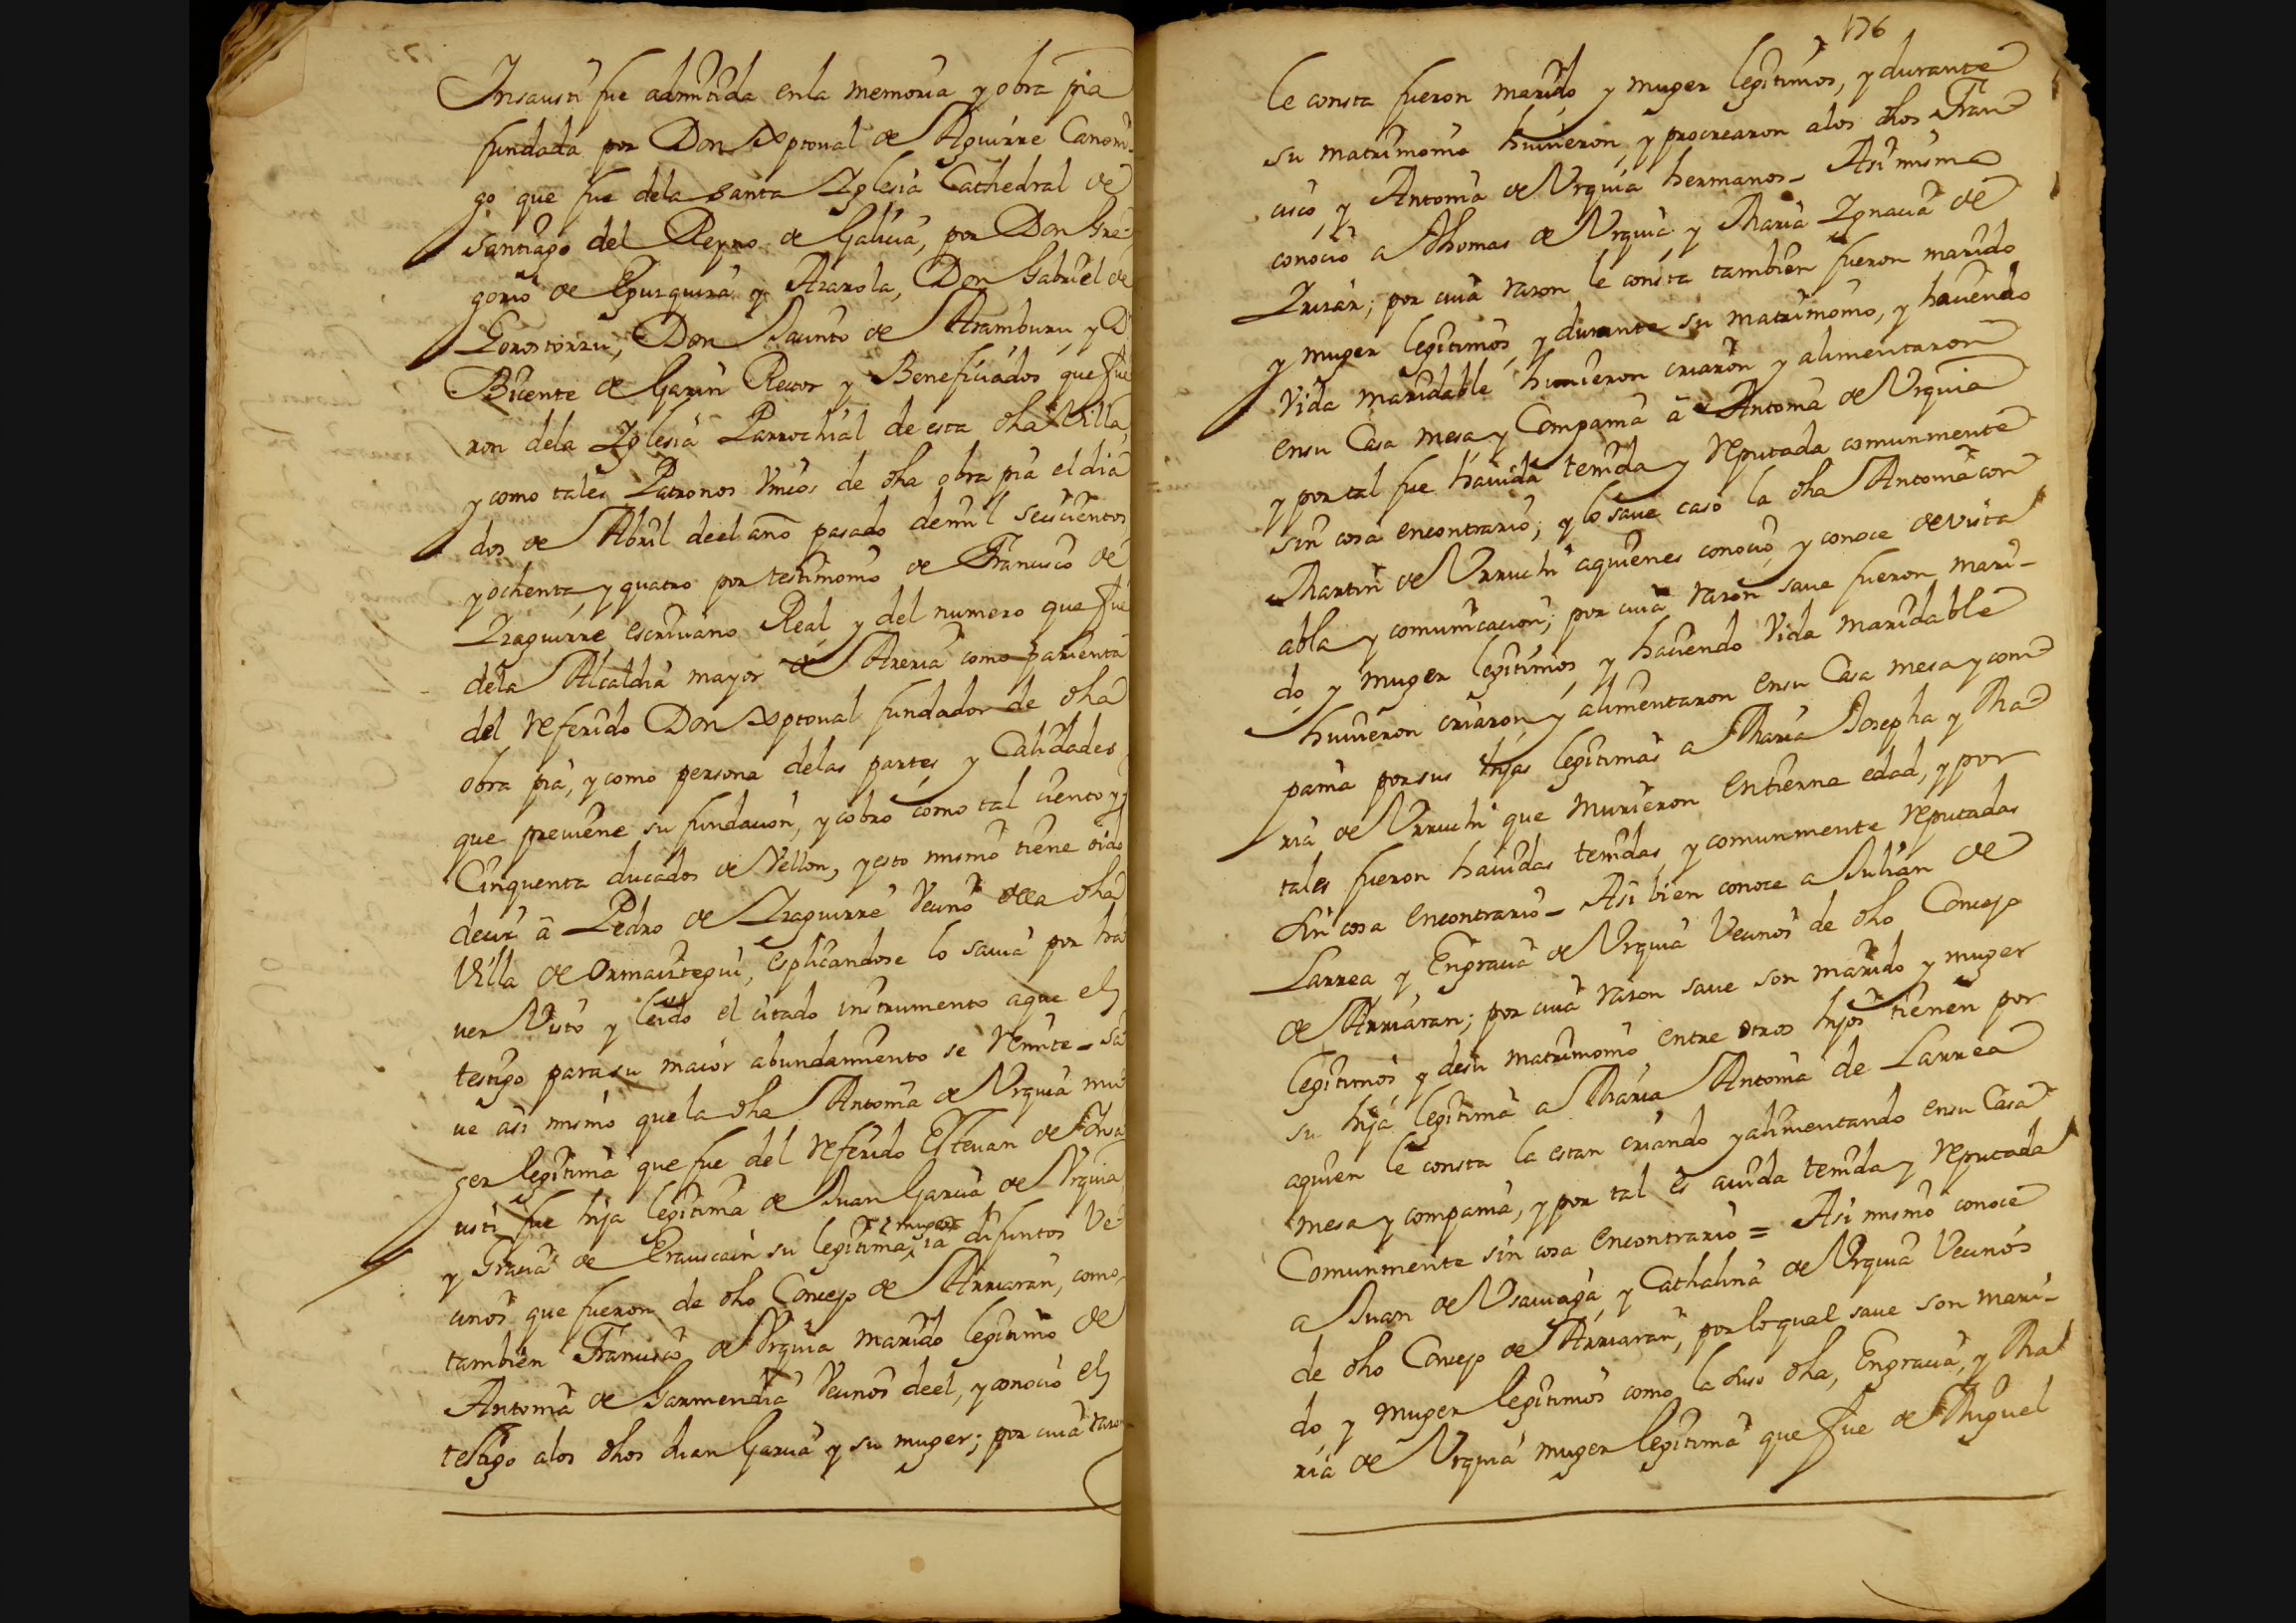 Insausti fue admitida en la memoria y obra pia
fundada por Don Xptoual de Aguirre Canoni-
go que fue dela santa Iglesia Cathedral de
santiago del Reyno de Galicia, por Don Gre-
gorio de Ypurguira y Ararola, Don Gabriel de
Gorostorzu, Don Jacinto de Aramburu, y D
Bicente de Garin Rector y Beneficiados que fue
ron dela Iglesia Parrochial de esta dha Villa,
y como tales Patronos Vnicos de dha obra pia el dia
dos de Abril deel año pasado de mil seiscientos
y ochenta y quatro por testimonio de Francisco de
Yraguirre escriuano Real y del numero que fue
dela Alcaldia mayor de Areria como parienta
del referido Don Xptoual fundador de dha
obra pia, y como persona delas partes y Calidades
que preuiene su fundacion, y cobro como tal ciento y
Cinquenta ducados de Vellon, y esto mismo tiene oido
decir â Pedro de Yraguirre Vecino dela dha
Villa de Ormaiztegui, esplicandose lo sauia por ha
uer Visto y leido el citado instrumento aque el
testigo para su maior abundamiento se remite - Sa
ue asi mismo que la dha Antonia de Vrquia mu
ger legitima que fue del referido Esteuan de Insa
usti fue hija legitima de Juan Garcia de Vrquia,
y Gracia de Erauscain su legitima muger ia difuntos Ve
cinos que fueron de dho Concejo de Arriaran, como
tambien Francisco de Vrquia marido legitimo de
Antonia de Garmendia Vecinos deel, y conocio el
testigo alos dhos Juan Garcia y su muger; por cuia razon
176
le consta fueron marido y muger legitimos, y durante
su matrimonio huuieron y procrearon alos dhos Fran
cisco, y Antonia de Vrquia hermanos - Asi mismo
conocio a Thomas de Vrquia y Maria Ignacia de
Yrizar; por cuia razon le consta tambien fueron marido
y muger legitimos y durante su matrimonio, y haciendo
Vida maridable huuieron criaron y alimentaron
ensu Casa mesa y Compania â Antonia de Vrquia
y por tal fue hauida tenida y reputada comunmente
sin cosa encontrario; y lo saue caso la dha Antonia con
Martin de Vrruchi aquienes conocio, y conoce de vista
abla y comunicacion; por cuia razon saue fueron mari-
do y muger legitimos y haciendo Vida maridable
huuieron criaron y alimentaron ensu Casa mesa y com
pania por sus hijas legitimas a Maria Josepha y Ma
ria de Vrruchi que murieron entierna edad, y por
tales fueron hauidas tenidas y comunmente reputadas
sin cosa encontrario - Asi bien conoce a Julian de
Larrea y Engracia de Vrquia Vecinos de dho Concejo
de Arriaran; por cuia razon saue son marido y muger
legitimos, y desu matrimonio entre otros hijos tienen por
su hija legitima a Maria Antonia de Larrea
aquien le consta la estan criando y alimentando ensu Casa
mesa y compania, y por tal es auida tenida y reputada
Comunmente sin cosa encontrario = Asi mismo conoce
a Juan de Vsauiaga y Cathalina de Vrquia Vecinos
de dho Concejo de Arriaran, por lo qual saue son mari-
do y muger legitimos como la suso dha, Engracia, y Ma
ria de Vrquia muger legitima que fue de Miguel